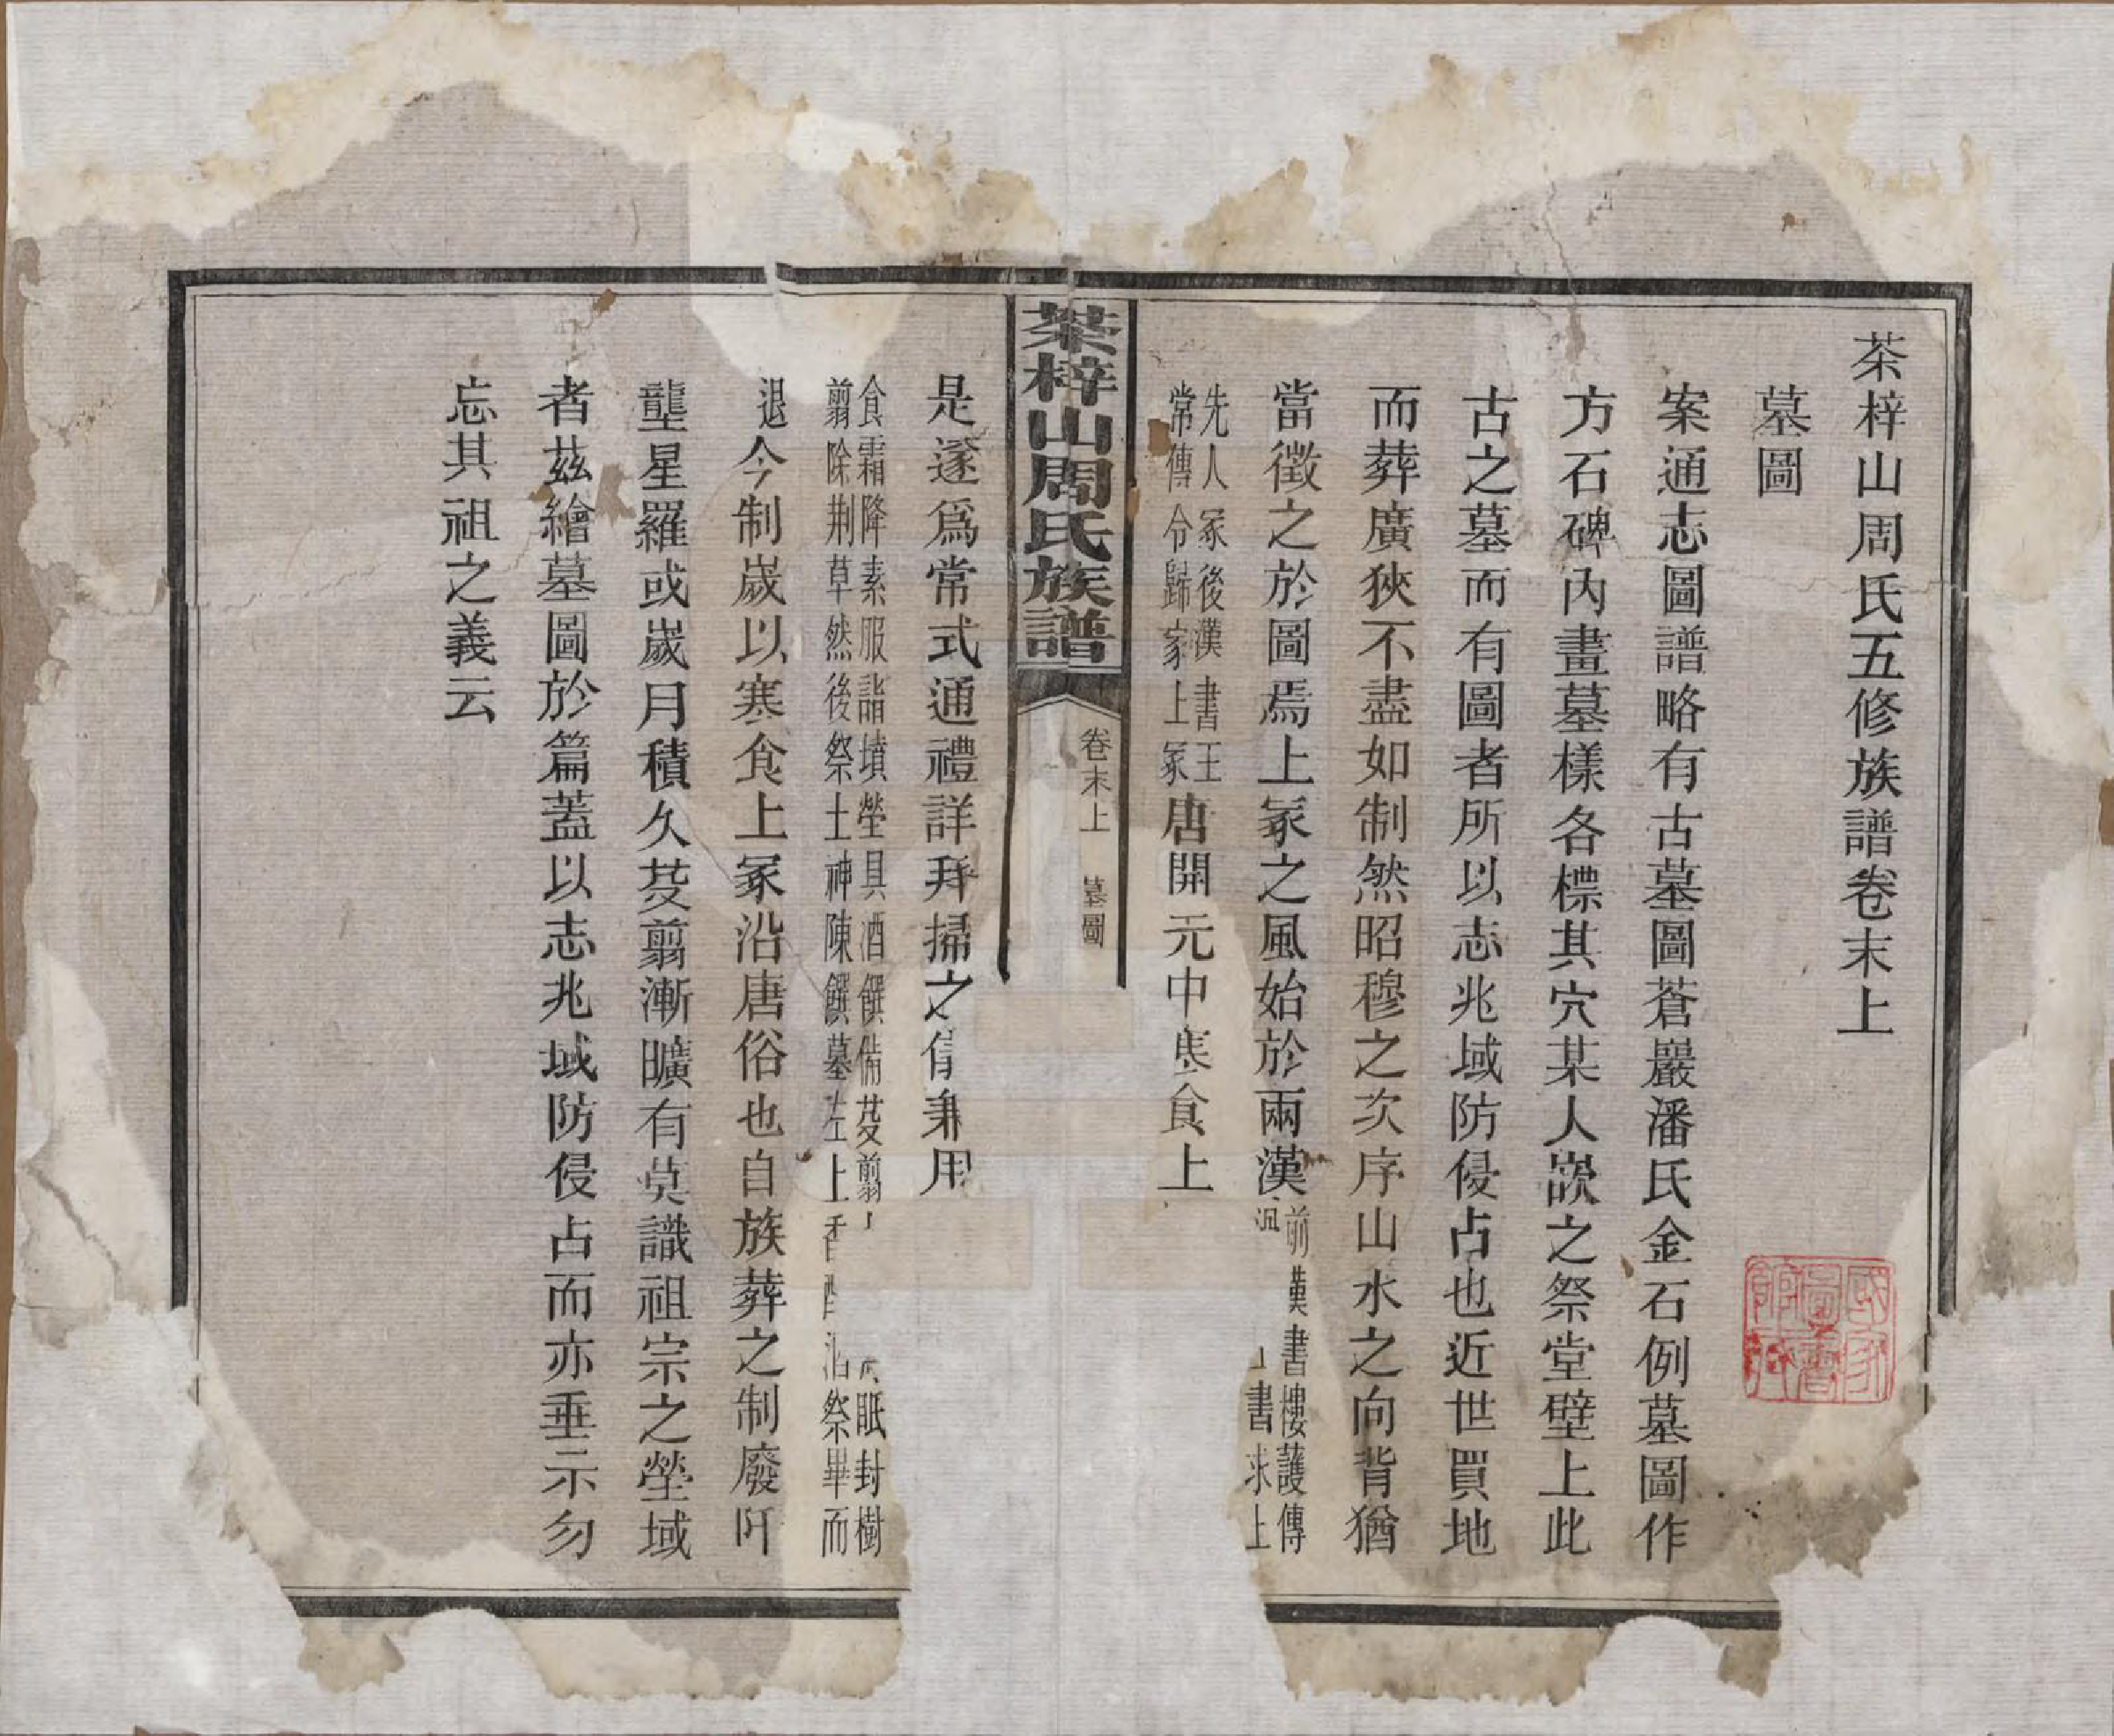 茶梓山周氏五修族譜卷末上
墓圖
案通志圖譜略有古墓圖蒼巖潘氏金石例墓圖作
方石碑內畫墓樣各標其穴某人嵗之祭堂壁上此
古之墓而有圖者所以志兆域防侵占也近世買地
而葬廣狹不盡如制然昭穆之次序山水之向背猶
當徵之於圖焉上冢之風始於兩漢
前漢書樓護傳
書求上
先人冢後漢書王
常傳令歸家上冢
唐開元中寒食上
茶梓山周氏族譜
卷末上 墓圖
是遂爲常式通禮詳拜掃之用
食霜降素服詣墳塋具酒饌備芟翦
眂封樹
翦除荆草然後祭土神陳饌墓左上香酒祭畢而
退
今制嵗以寒食上冢沿唐俗也自族葬之制廢阡
壟星羅或嵗月積久芟翦漸曠有莫識祖宗之塋域
者茲繪墓圖於篇蓋以志兆域防侵占而亦垂示勿
忘其祖之義云